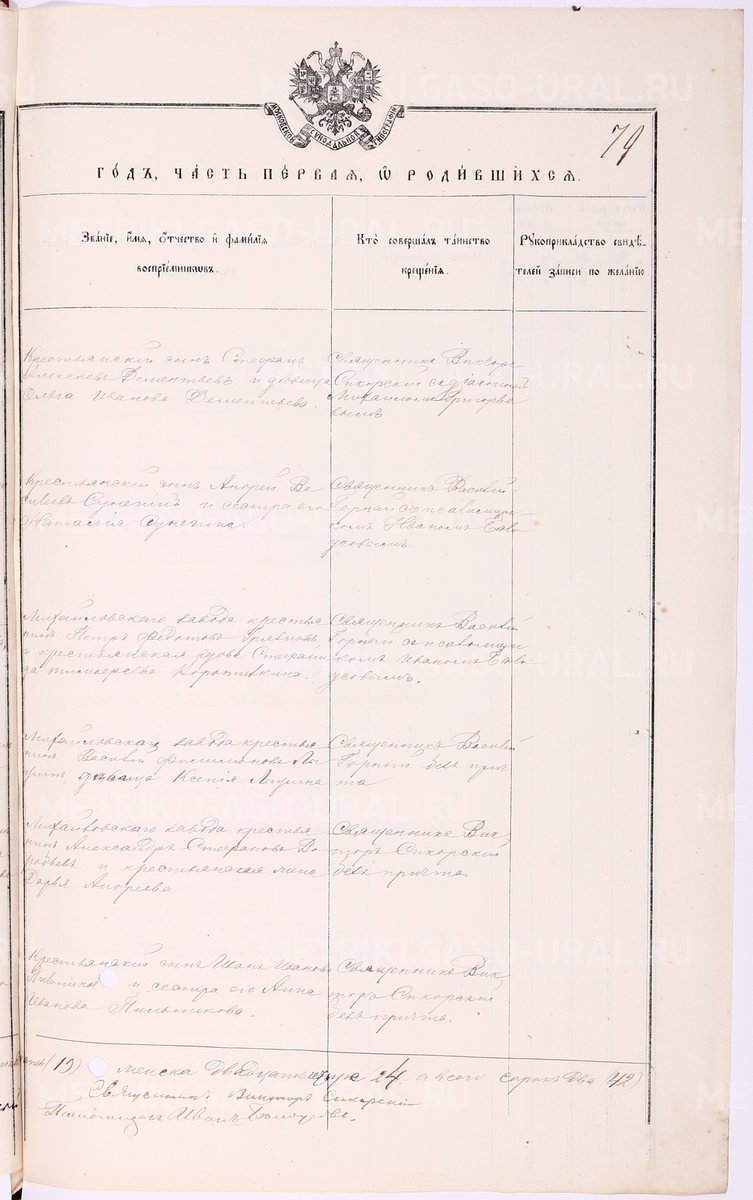 МОСКОВСКОЙ СѴНОДАЛЬНОЙ ТИПОГРАФІИ
79
ГОДЪ, ЧАСТЬ ПЕРВАЯ, Ѡ РОДИВШИХСЯ.
Званіе, имя, отчество и фамилія
воспріемниковъ.
Кто совершалъ таинство
крещенія.
Рукоприкладство свидѣ-
телей записи по желанію
Крестьянскій сынъ Стефанъ
Алексеевъ Дементьевъ и девица
Ольга Иванова Дементьева.
Священникъ Викторъ
Сикорскій
Михаиломъ Григорье
вымъ
Крестьянскій сынъ Андрей Ва
сильевъ и сестра его
Наталия
Священникъ Василій
Горный съ псаломщи-
комъ Иваномъ Бело
усовымъ.
Михайловскаго завода крестья
нинъ Петръ Федотовъ
и крестьянская вдова Стефани
да Коротовкина.
Священникъ Василій
Горный съ псаломщи
комъ Иваномъ Бело
усовымъ.
Михайловскаго завода крестья
нинъ Василій Филимоновъ
девица Ксенія
Священникъ Василій
Горный безъ прич
та
Михайловскаго завода крестья
нинъ Александръ Стефановъ Во
робьевъ и крестьянская жена
Дарья Андреева
Священникъ Вик-
торъ Сикорскій
безъ причта.
Крестьянскій сынъ Иванъ Ивановъ
Пильниковъ и сестра его Анна
Иванова Пильникова.
Священникъ Вик-
торъ Сикорскій
безъ причта.
женска двадцать четыре /24 а всего сорокъ два (42)
Священникъ Викторъ Сикорскій
Псаломщикъ Иванъ Белоусовъ.
METRIKI.GASO-URAL.RU